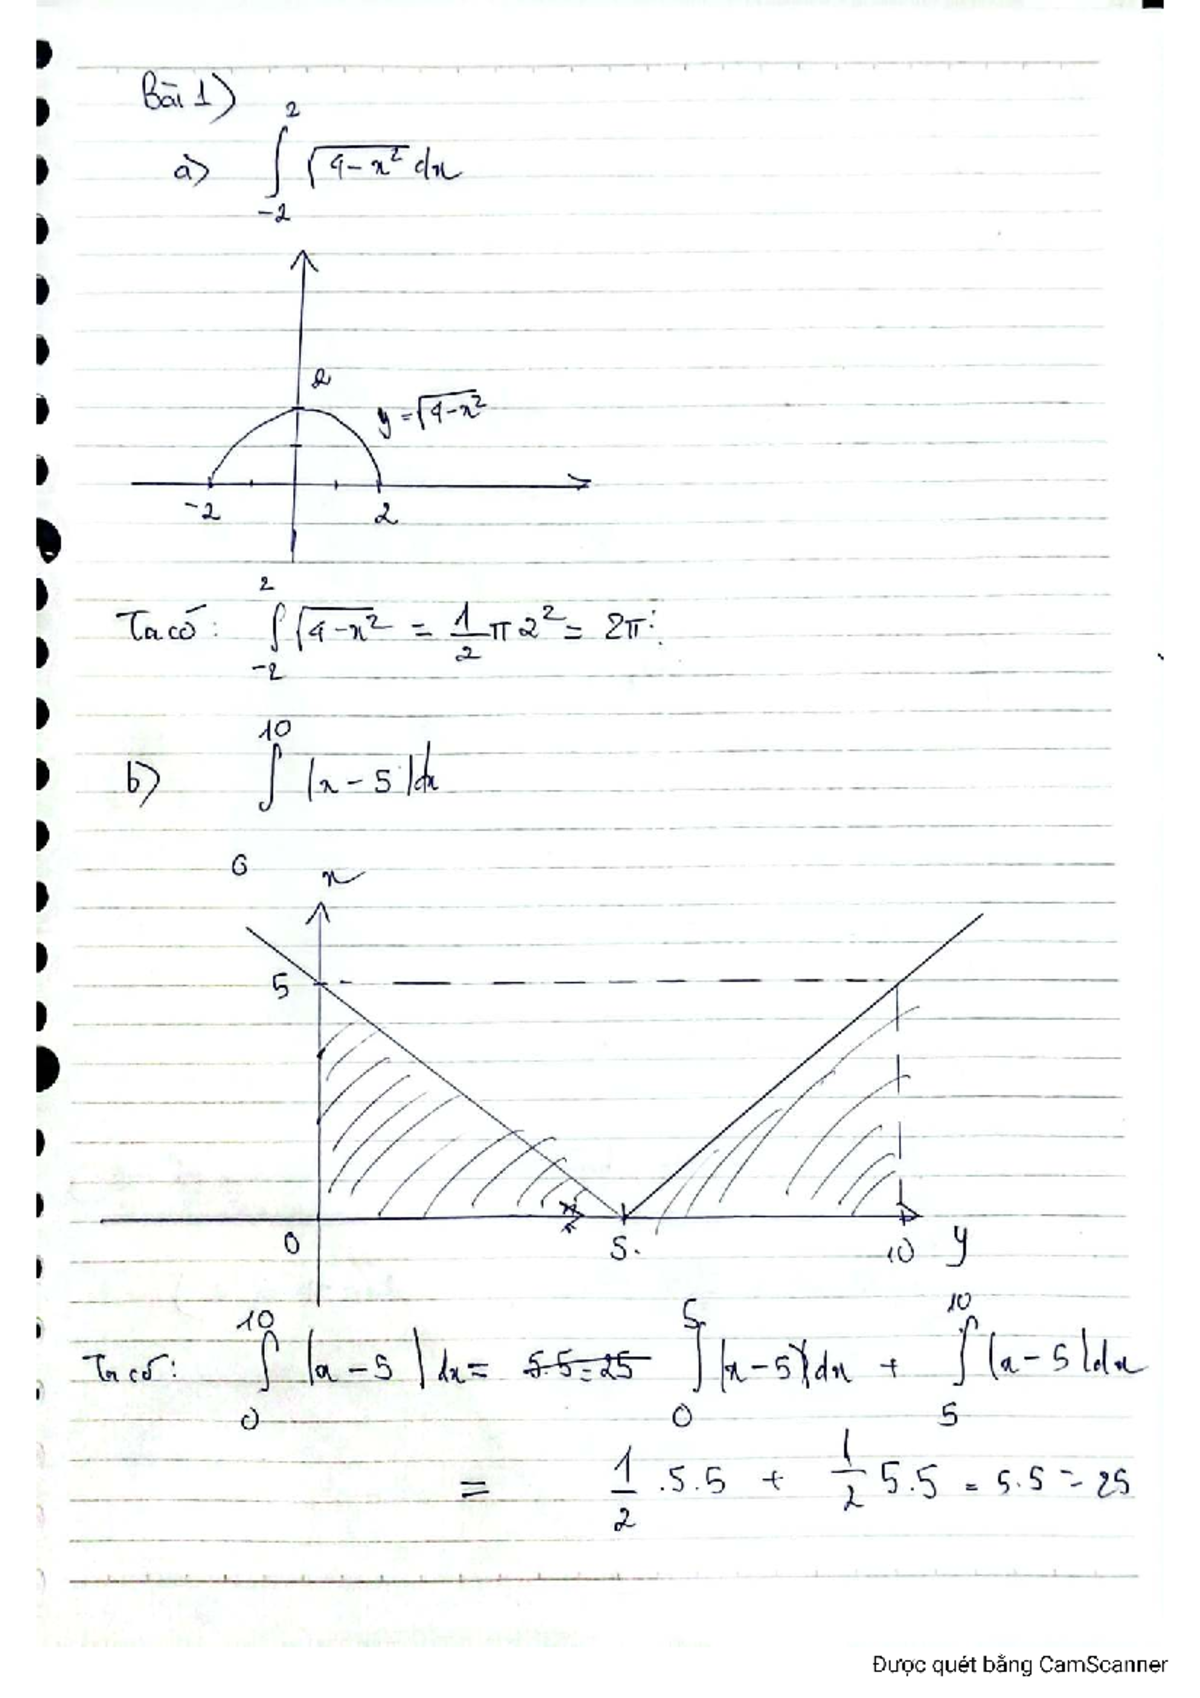 Bài 1)
a) ∫_{-2}^{2} √(4-x²) dx
2
y = √(4-x²)
-2 2
Ta có: ∫_{-2}^{2} √(4-x²) = 1/2 π 2² = 2π
b) ∫_{0}^{10} |x-5| dx
x
5
0 5 10 y
Ta có: ∫_{0}^{10} |x-5| dx = 5.5=25 ∫_{0}^{5} |x-5| dx + ∫_{5}^{10} |x-5| dx
= 1/2 .5.5 + 1/2 5.5 = 5.5 = 25
Được quét bằng CamScanner